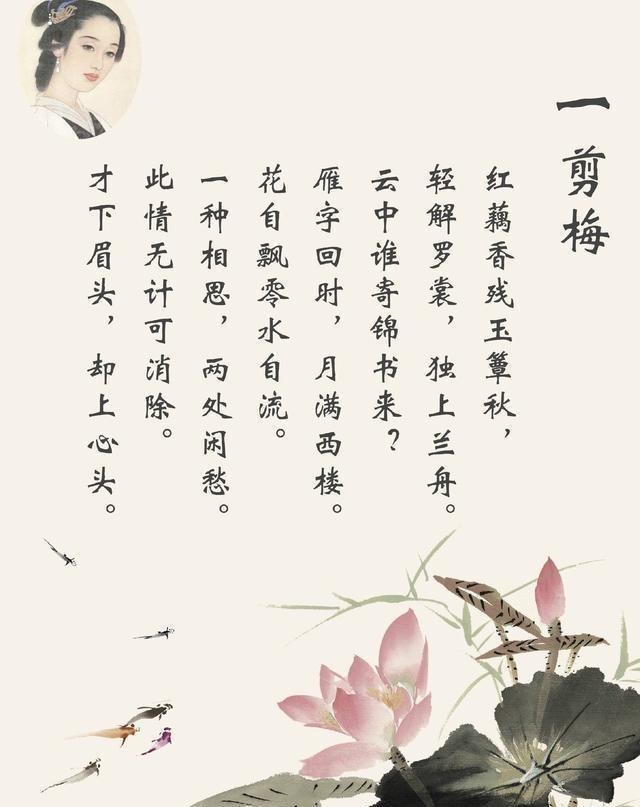 一剪梅
红藕香残玉簟秋，
轻解罗裳，独上兰舟。
云中谁寄锦书来？
雁字回时，月满西楼。
花自飘零水自流。
一种相思，两处闲愁。
此情无计可消除。
才下眉头，却上心头。